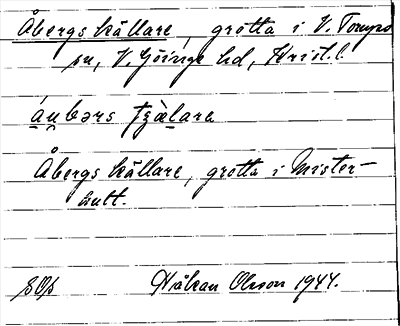 Åbergs källare, grotta i V. Torups
sn, V. Göinge hd, Krist. l.
áu̯bərs tʃæ̀lara
Åbergs källare, grotta i Mister-
hult.
Håkan Olsson 1944.